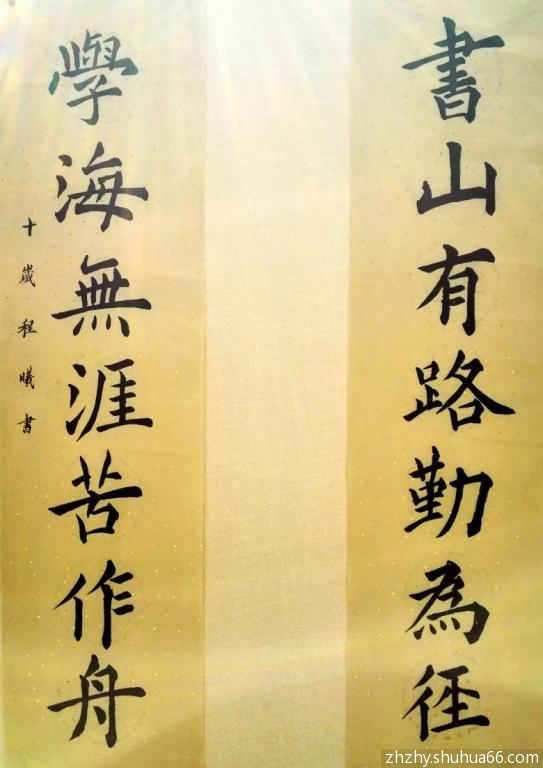 書山有路勤為徑
學海無涯苦作舟
十歲程曦書
zhzhy.shuhua66.com